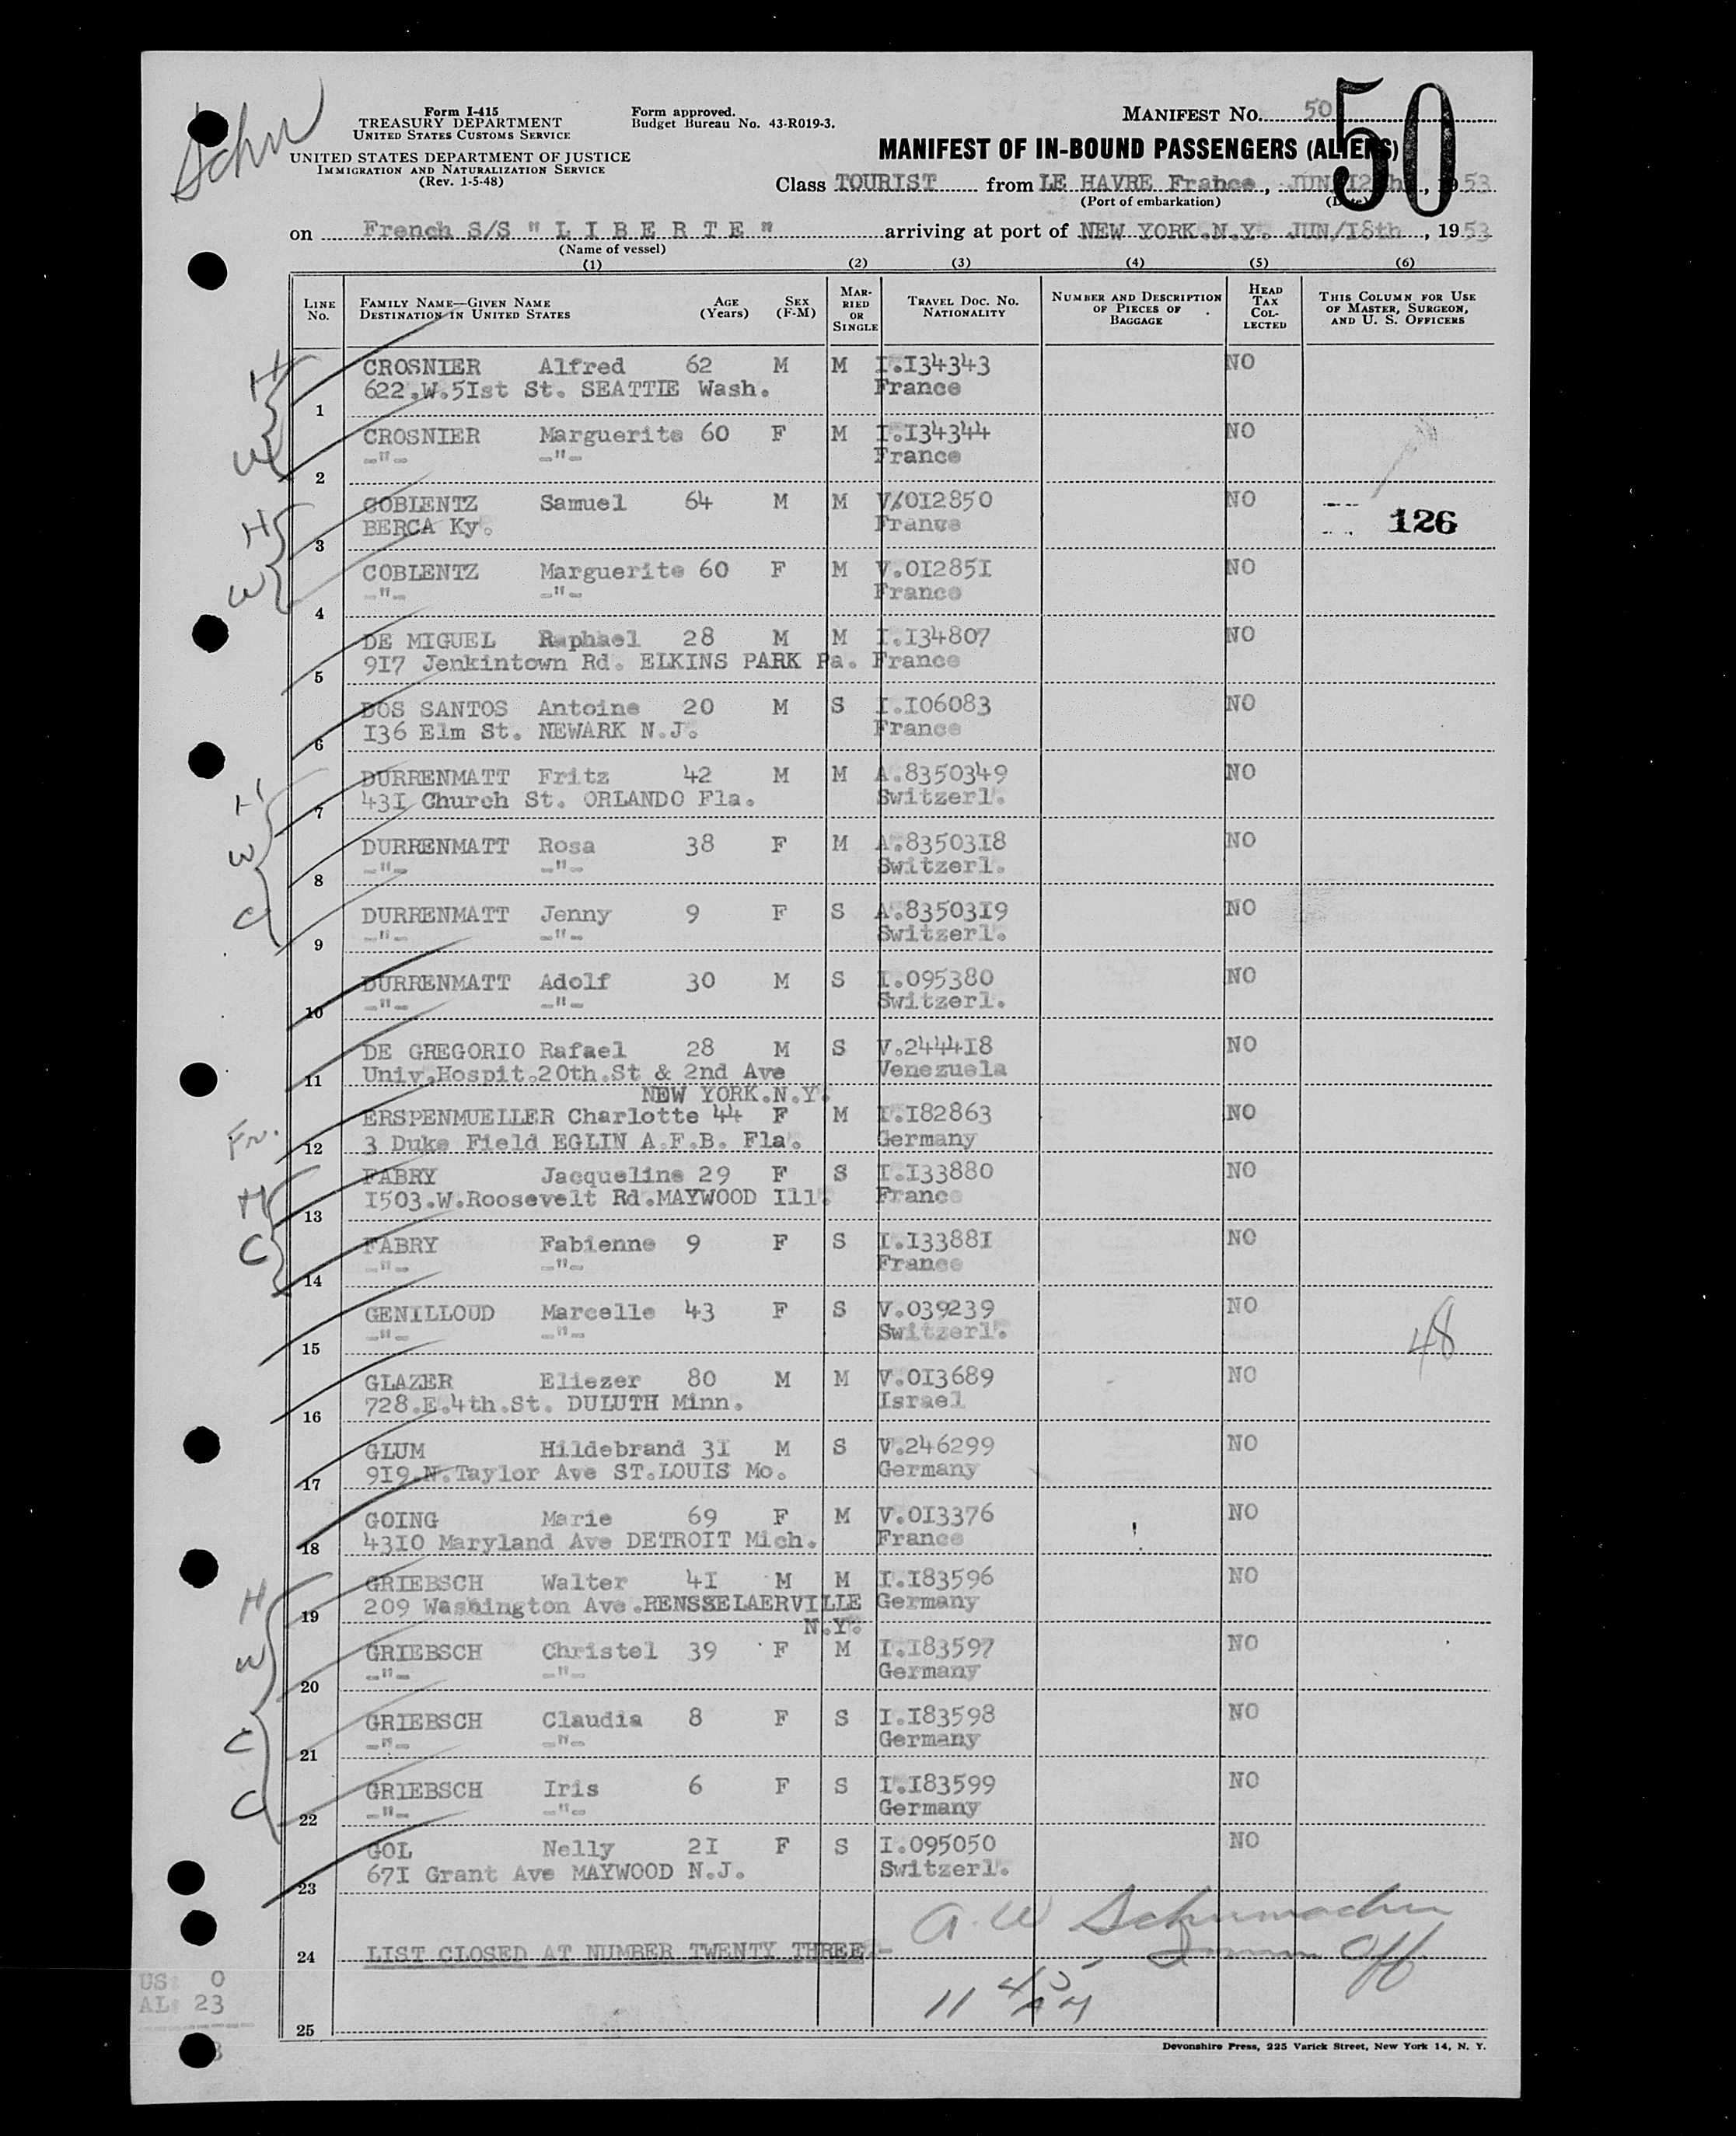 Schu
Form I-415
TREASURY DEPARTMENT
UNITED STATES CUSTOMS SERVICE
UNITED STATES DEPARTMENT OF JUSTICE
IMMIGRATION AND NATURALIZATION SERVICE
(Rev. 1-5-48)
Form approved.
Budget Bureau No. 43-R019-3.
MANIFEST No. 50
50
MANIFEST OF IN-BOUND PASSENGERS (ALIENS)
Class TOURIST from LE HAVRE France, JUN/12th, 1953
(Port of embarkation) (Date)
on French S/S " L I B E R T E " arriving at port of NEW YORK.N.Y. JUN/I8th, 1953
(Name of vessel)
(1) (2) (3) (4) (5) (6)
LINE No. FAMILY NAME—GIVEN NAME DESTINATION IN UNITED STATES AGE (Years) SEX (F-M) MARRIED OR SINGLE TRAVEL DOC. NO. NATIONALITY NUMBER AND DESCRIPTION OF PIECES OF BAGGAGE HEAD TAX COLLECTED THIS COLUMN FOR USE OF MASTER, SURGEON, AND U. S. OFFICERS
H CROSNIER Alfred 62 M M I.I34343 NO
622.W.5Ist St. SEATTIE Wash. France
1
W CROSNIER Marguerite 60 F M I.I34344 NO
-"- -"- France
2
H COBLENTZ Samuel 64 M M V/0I2850 NO
BERCA Ky. France 126
3
W COBLENTZ Marguerite 60 F M V.0I285I NO
-"- -"- France
4
DE MIGUEL Raphael 28 M M I.I34807 NO
9I7 Jenkintown Rd. ELKINS PARK Pa. France
5
DOS SANTOS Antoine 20 M S I.I06083 NO
I36 Elm St. NEWARK N.J. France
6
H DURRENMATT Fritz 42 M M A.8350349 NO
43I Church St. ORLANDO Fla. Switzerl.
7
W DURRENMATT Rosa 38 F M A.83503I8 NO
-"- -"- Switzerl.
8
C DURRENMATT Jenny 9 F S A.83503I9 NO
-"- -"- Switzerl.
9
DURRENMATT Adolf 30 M S I.095380 NO
-"- -"- Switzerl.
10
DE GREGORIO Rafael 28 M S V.2444I8 NO
Univ.Hospit.20th.St & 2nd Ave Venezuela
11
NEW YORK.N.Y.
Fr. ERSPENMUELLER Charlotte 44 F M I.I82863 NO
3 Duke Field EGLIN A.F.B. Fla. Germany
12
M FABRY Jacqueline 29 F S I.I33880 NO
I503.W.Roosevelt Rd.MAYWOOD Ill. France
13
C FABRY Fabienne 9 F S I.I3388I NO
-"- -"- France
14
GENILLOUD Marcelle 43 F S V.039239 NO
-"- -"- Switzerl. 48
15
GLAZER Eliezer 80 M M V.0I3689 NO
728.E.4th.St. DULUTH Minn. Israel
16
GLUM Hildebrand 3I M S V.246299 NO
9I9.N.Taylor Ave ST.LOUIS Mo. Germany
17
GOING Marie 69 F M V.0I3376 NO
43I0 Maryland Ave DETROIT Mich. France
18
H GRIEBSCH Walter 4I M M I.I83596 NO
209 Washington Ave.RENSSELAERVILLE Germany
19
N.Y.
W GRIEBSCH Christel 39 F M I.I83597 NO
-"- -"- Germany
20
C GRIEBSCH Claudia 8 F S I.I83598 NO
-"- -"- Germany
21
C GRIEBSCH Iris 6 F S I.I83599 NO
-"- -"- Germany
22
GOL Nelly 2I F S I.095050 NO
67I Grant Ave MAYWOOD N.J. Switzerl.
23
A. W Schumacher
Immn Off
24 LIST CLOSED AT NUMBER TWENTY THREE.-
US: 0
AL: 23
11 45 AM
25
Devonshire Press, 225 Varick Street, New York 14, N. Y.